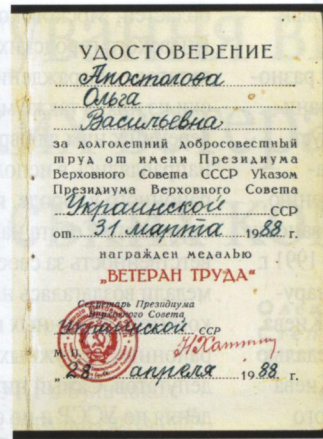 УДОСТОВЕРЕНИЕ
Апостолова
Ольга
Васильевна
за долголетний добросовестный
труд от имени Президиума
Верховного Совета СССР Указом
Президиума Верховного Совета
Украинской ССР
от 31 марта 1988 г.
награжден медалью
„ВЕТЕРАН ТРУДА"
Секретарь Президиума
Верховного Совета
Украинской ССР
М. П.
28 апреля 1988 г.